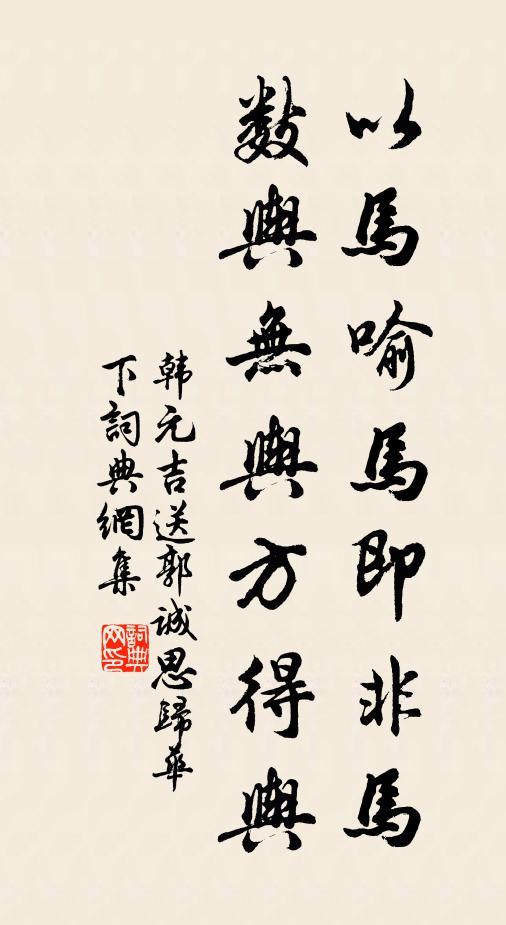 以馬喻馬即非馬
数輿無輿方得輿
韩元吉送郭诚思歸華
下詞典網集
詞典
网印